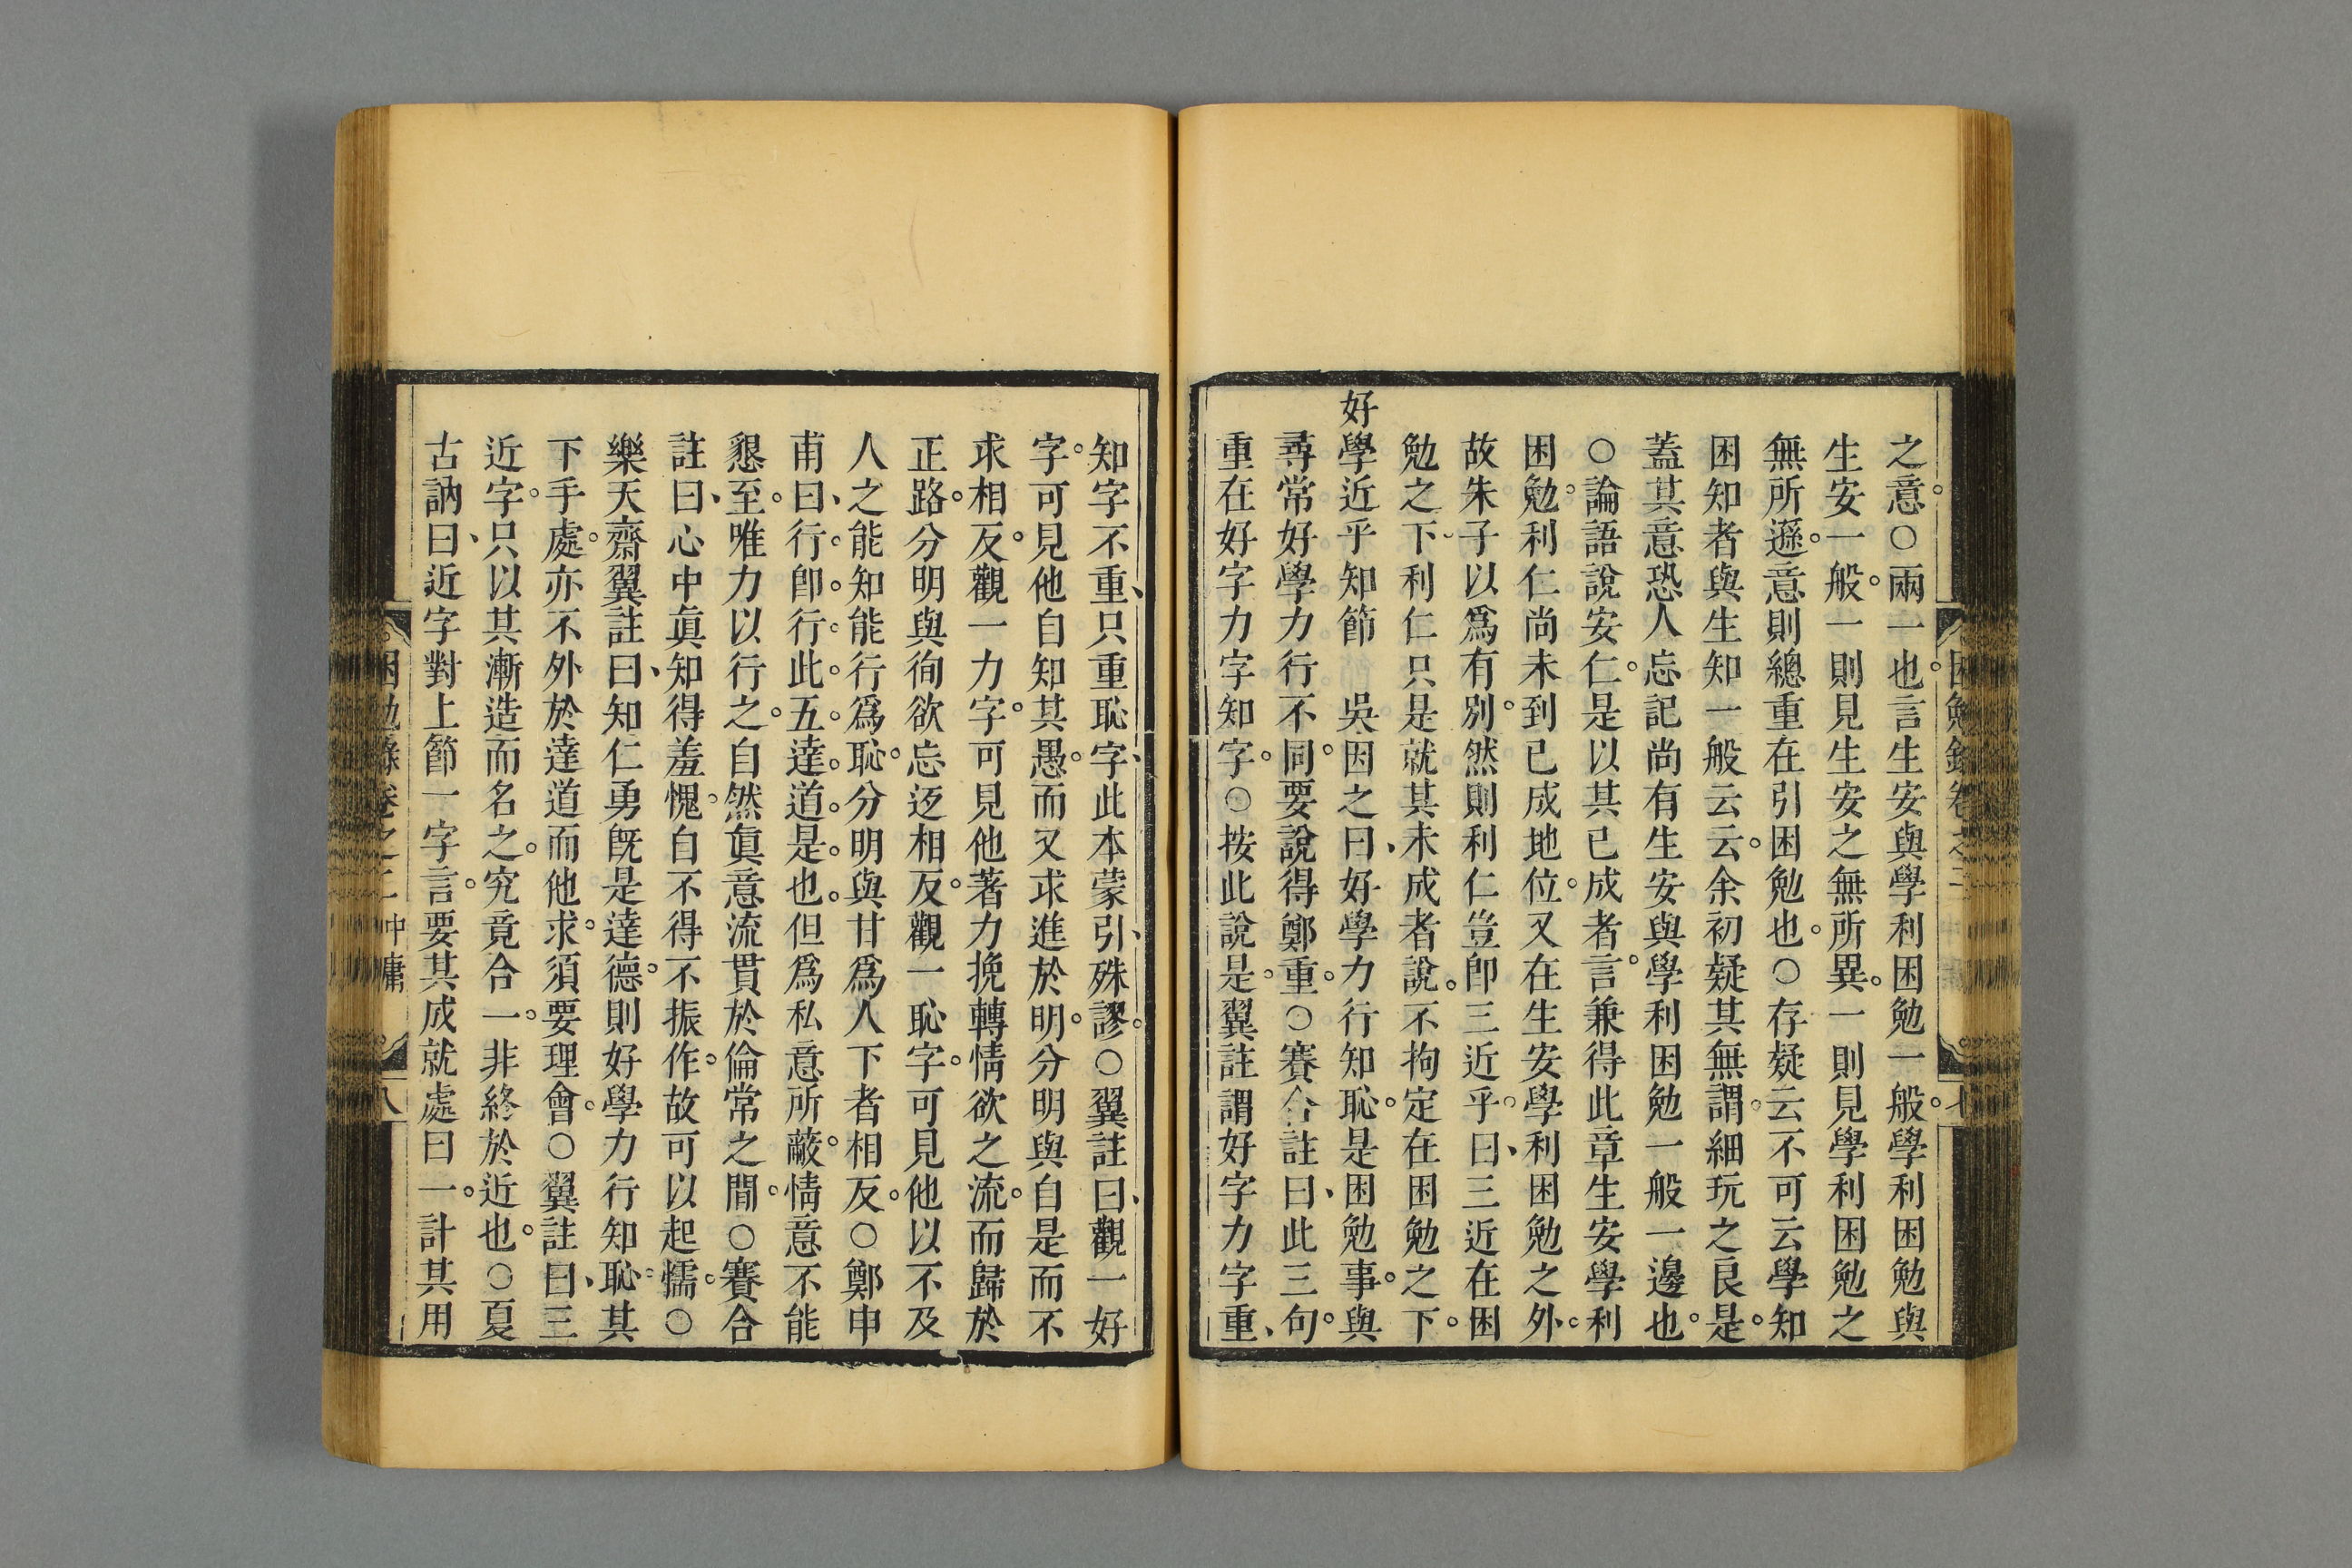 之意。○兩一也。言生安與學利困勉一般。學利困勉與
生安一般。一則見生安之無所異。一則見學利困勉之
無所遜。意則總重在引困勉也。○存疑云不可云學知
困知者與生知一般云云。余初疑其無謂。細玩之良是。
蓋其意恐人忘記尚有生安與學利困勉一般一邊也。
○論語說安仁。是以其已成者言。兼得此章生安學利
困勉。利仁尚未到已成地位。又在生安學利困勉之外。
故朱子以爲有別。然則利仁豈卽三近乎。曰、三近在困
勉之下、利仁只是就其未成者說。不拘定在困勉之下。
好學近乎知節　吳因之曰、好學力行知恥。是困勉事。與
尋常好學力行不同。要說得鄭重。○賽合註曰、此三句。
重在好字力字知字。○按此說是。翼註謂好字力字重、
知字不重、只重恥字、此本蒙引、殊謬。○翼註曰、觀一好
字。可見他自知其愚。而又求進於明。分明與自是而不
求相反。觀一力字。可見他著力挽轉情欲之流。而歸於
正路。分明與徇欲忘返相反。觀一恥字。可見他以不及
人之能知能行爲恥。分明與甘爲人下者相反。○鄭申
甫曰、行。卽。行。此。五。達。道。是。也。但爲私意所蔽。情意不能
懇至。唯力以行之。自然眞意流貫於倫常之間。○賽合
註曰、心中眞知得羞愧。自不得不振作。故可以起懦。○
樂天齋翼註曰、知仁勇旣是達德。則好學力行知恥其
下手處。亦不外於達道而他求。須要理會。○翼註曰、三
近字。只以其漸造而名之。究竟合一。非終於近也。○夏
古訥曰、近字對上節一字言。要其成就處曰一。計其用
困勉錄卷之二 中庸 八